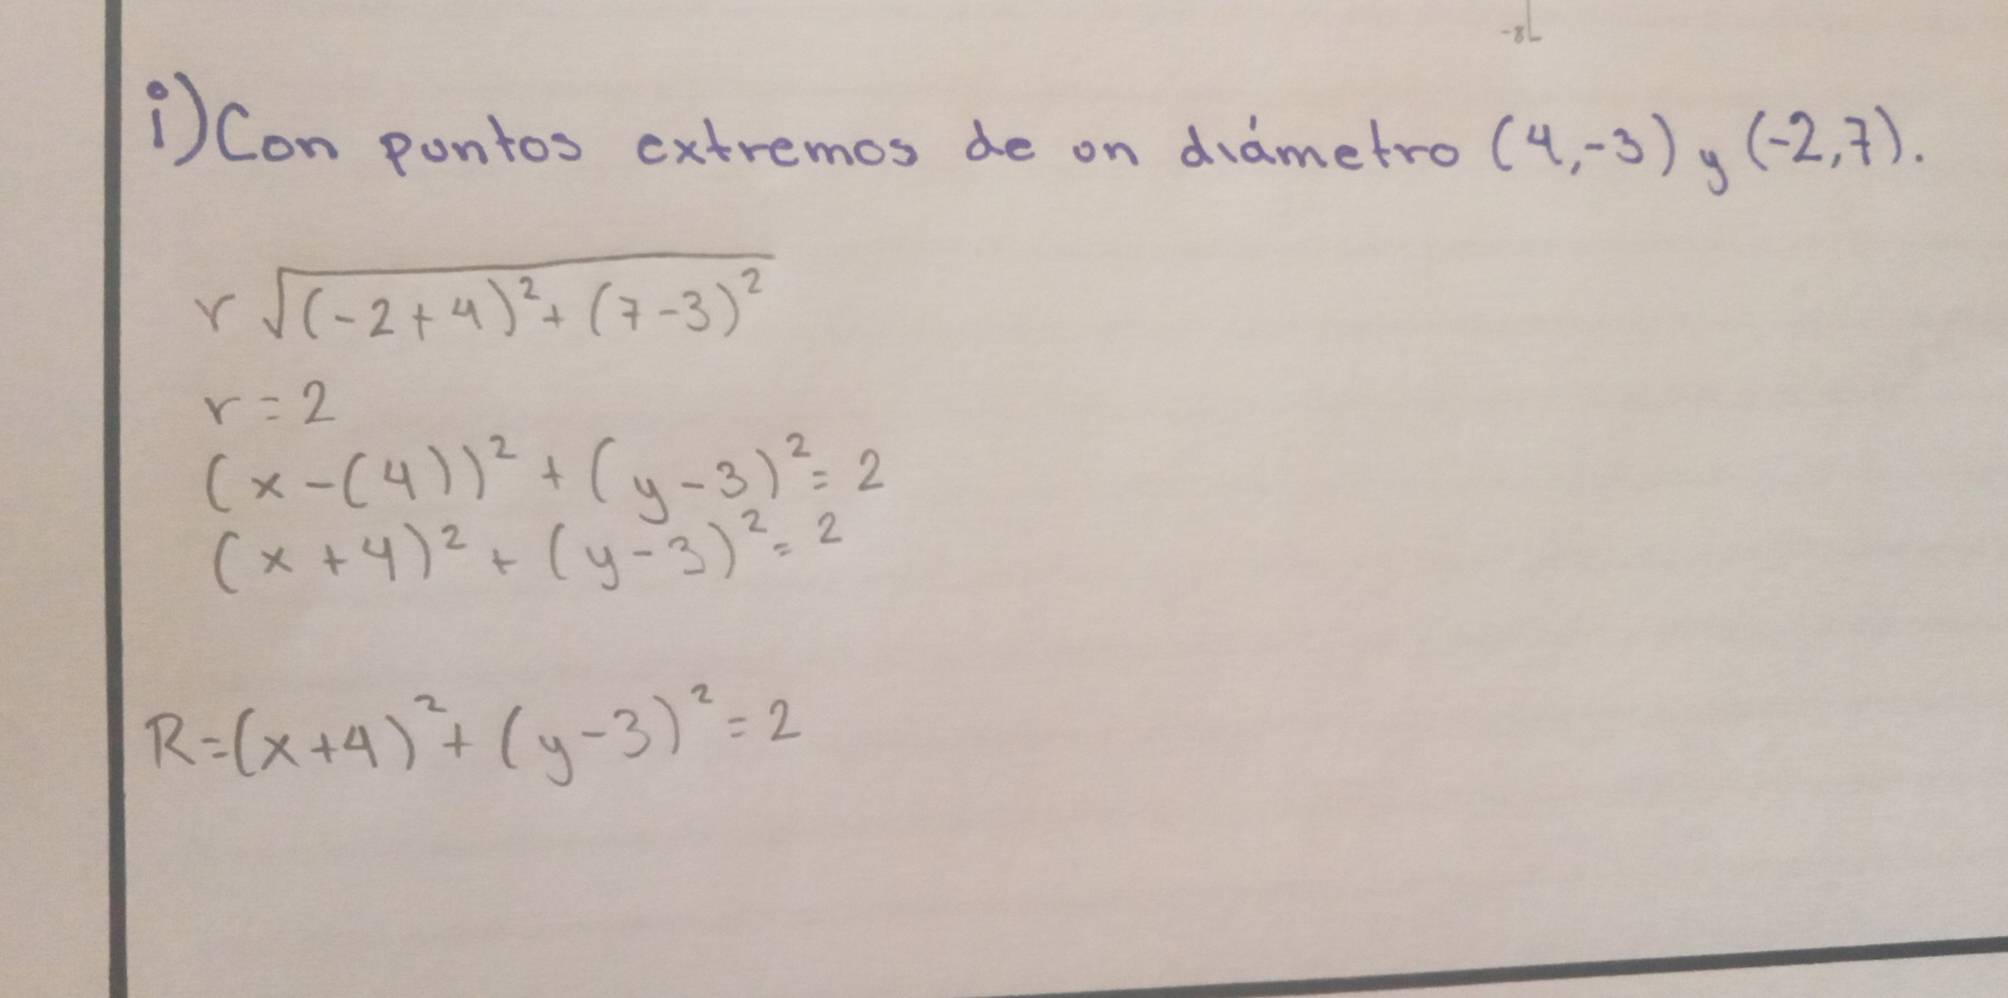 -8
i) Con puntos extremos de un diámetro (4,-3) y (-2,7).
r √(-2+4)²+(7-3)²
r=2
(x-(4))²+(y-3)²=2
(x+4)²+(y-3)²=2
R=(x+4)²+(y-3)²=2